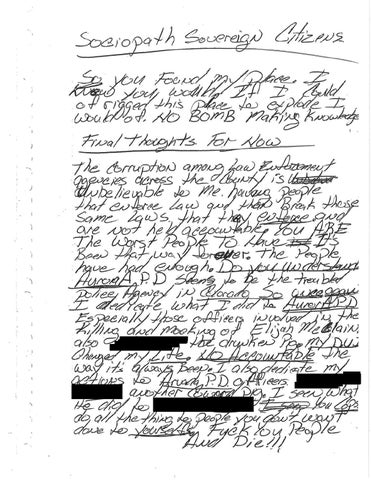 Sociopath Sovereign Citizens
So you Found my Place. I
Knew you would. If I could
of rigged this place to explode I
would of. NO BOMB Making Knowledge
Final Thoughts For Now
The Corruption among Law Enforcement
agencies across the County is
Unbelievable to Me. people
that enforce Law and then Break those
Same Laws, that they enforce and
are not held accountable. You ARE
The Worst People To Have. It's
Been that way forever. The People
have had enough. Do you understand
Aurora P.D Seems to be the trouble
Police in Colorado So
I dedicate what I did to Aurora P.D
Especially those officers involved in the
Killing and mocking of Elijah McClain
also the drunken pig my DUI
Changed my Life. NO Accountable the
way it's always been. I also dedicate my
actions to Arvada P.D officers
another coward pig. I seen what
He did to I seen you cops
do all the thing to people you don't want
done to yourselfs. Fuck You People
And Die!!!